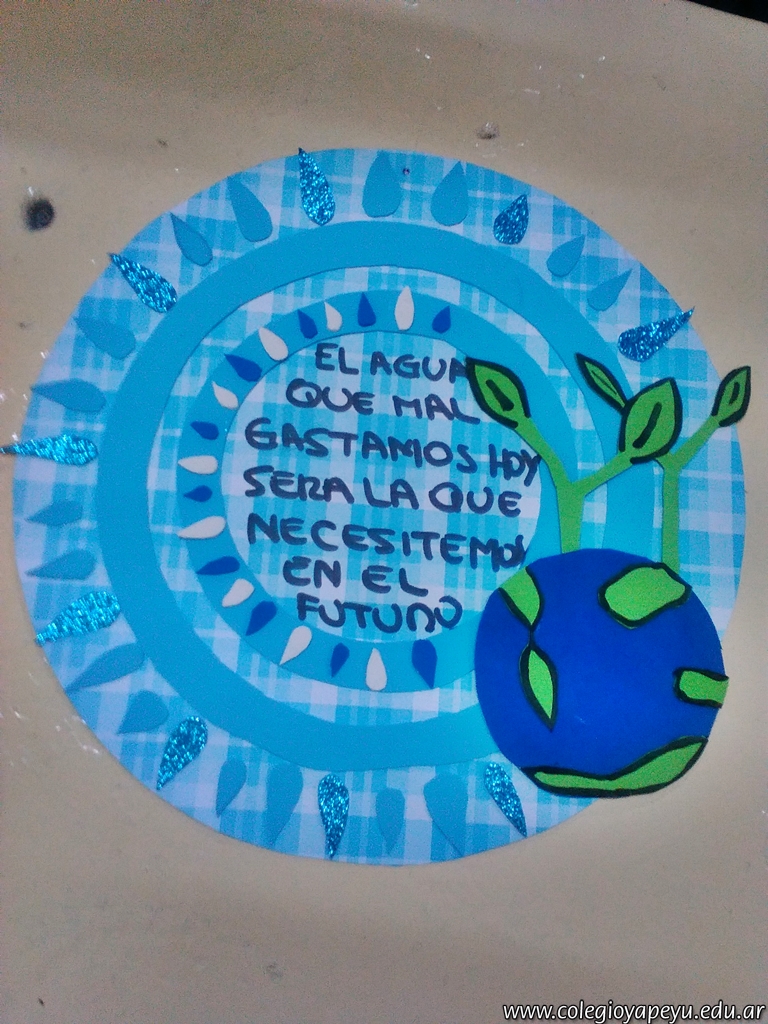 EL AGUA
QUE MAL
GASTAMOS HOY
SERA LA QUE
NECESITEMOS
EN EL
FUTURO
www.colegioyapeyu.edu.ar